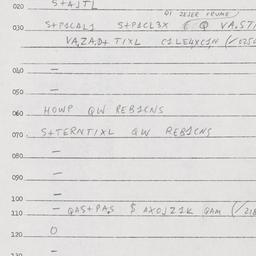 020 S+AJTL
030 S+P1CALJ S+P1CL3X Q VA,STI
VA,ZA,D+ TIXL C1LE4XC1N
040 —
050 —
060 HOWP QW REB1CNS
070 S+TERNTIXL QW REB1CNS
080 —
090 —
100 —
110 — QAS+PAS $ AXOJZ1K GAM (/218
120 O
130 —